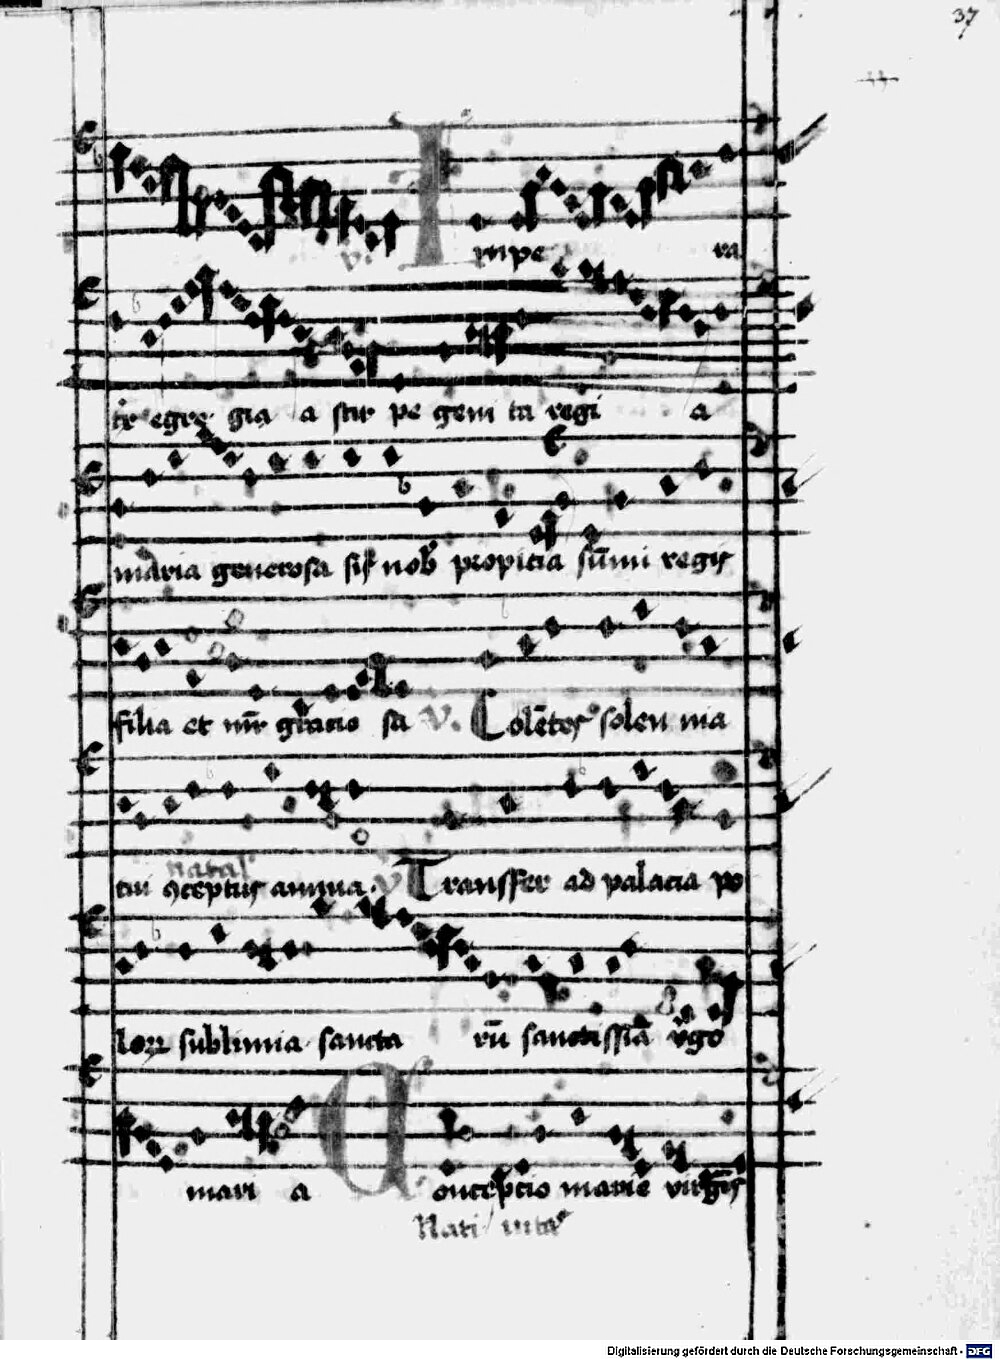 37
V. Impe ra
tˣ egre gia a stir pe geni ta regi a
maria generosa sis nob̄ propicia sūmi regis
filia et mr̄ gracio sa V. Colētes solen nia
natal
tui ꝯceptus annua. V Transfer ad palacia po
loꝝ sublimia sancta rū sanctissiā v̓go
mari a Concepcio marie virgīs
Nati uitas
Digitalisierung gefördert durch die Deutsche Forschungsgemeinschaft - DFG